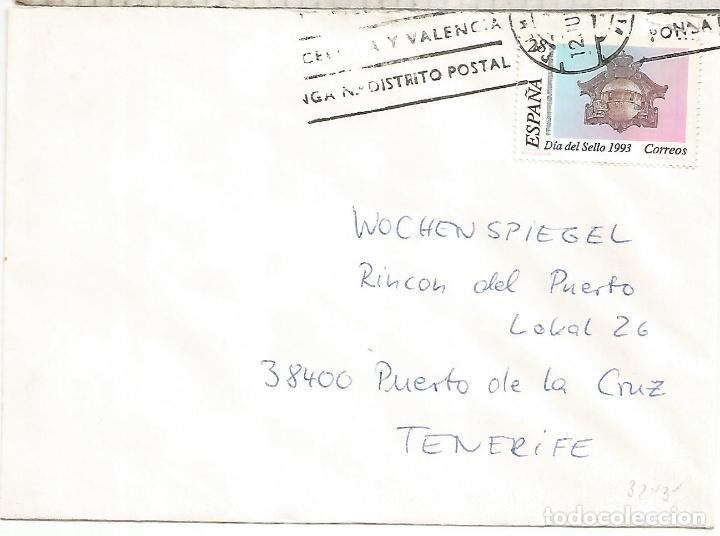 Y VALENCIA
DISTRITO POSTAL
12
ESPAÑA
Día del Sello 1993 Correos
WOCHENSPIEGEL
Rincon del Puerto
Lokal 26
38400 Puerto de la Cruz
TENERIFE
todocoleccion